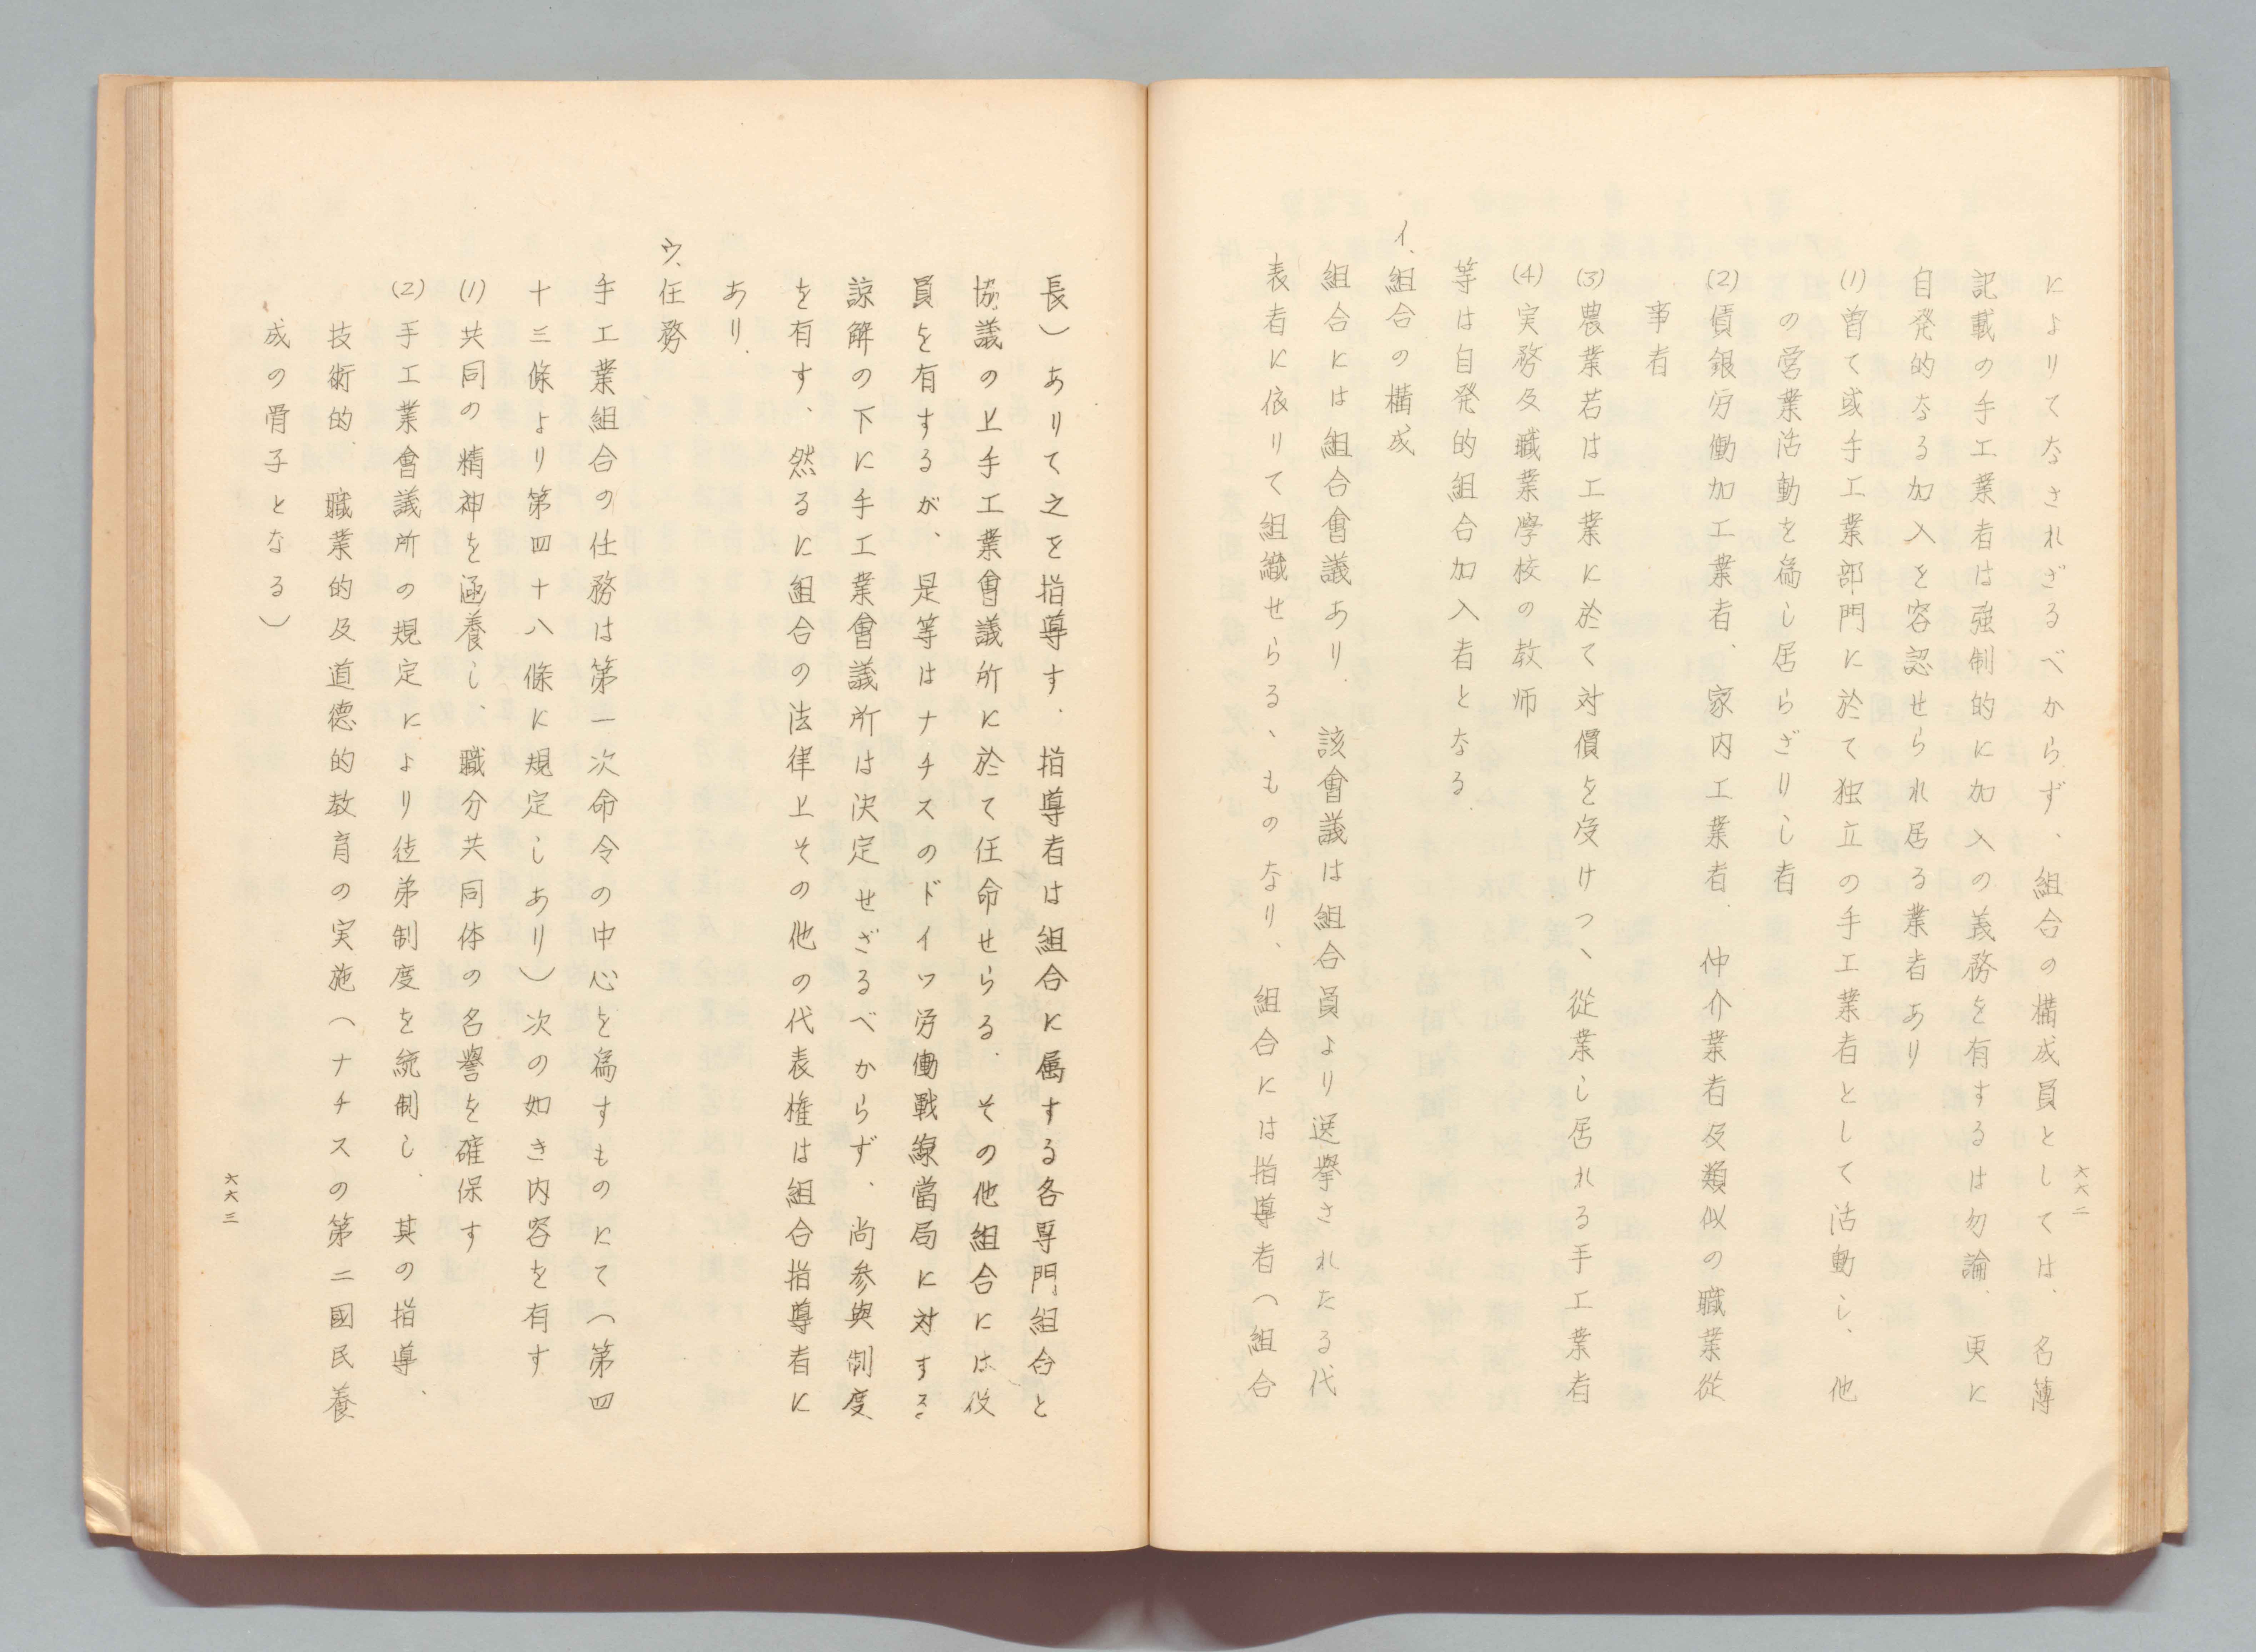 によりてなされざるべからず、組合の構成員としては、名簿
記載の手工業者は強制的に加入の義務を有するは勿論、更に
自発的なる加入を容認せられ居る業者あり
(1)曽て或手工業部門に於て独立の手工業者として活動し、他
の営業活動を為し居らざりし者
(2)債銀労働加工業者、家内工業者、仲介業者及類似の職業従
事者
(3)農業若は工業に於て対價を受けつゝ従業し居れる手工業者
(4)実務及職業学校の教师
等は自発的組合加入者となる
イ、組合の構成
組合には組合會議あり、該會議は組合員より送挙されたる代
表者に依りて組織せらるゝものなり、組合には指導者（組合
六六二
長）ありて之を指導す、指導者は組合に属する各専門組合と
協議の上手工業會議所に於て任命せらる、その他組合には役
員を有するが、是等はナチスのドイツ労働戦線當局に対する
諒解の下に手工業會議所は決定せざるべからず、尚参與制度
を有す、然るに組合の法律上その他の代表権は組合指導者に
あり、
ウ、任務
手工業組合の仕務は第一次命令の中心を為すものにて（第四
十三條より第四十八條に規定しあり）次の如き内容を有す
(1)共同の精神を涵養し、職分共同体の名譽を確保す
(2)手工業會議所の規定により徒弟制度を統制し、其の指導、
技術的、職業的及道徳的教育の実施（ナチスの第二國民養
成の骨子となる）
六六三